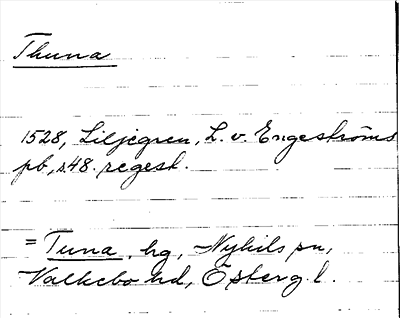 Thuna
1528, Liljegren, L. v. Engeströms
pb, s.48. regest.
= Tuna, hg, Nykils sn,
Valkebo hd, Österg. l.